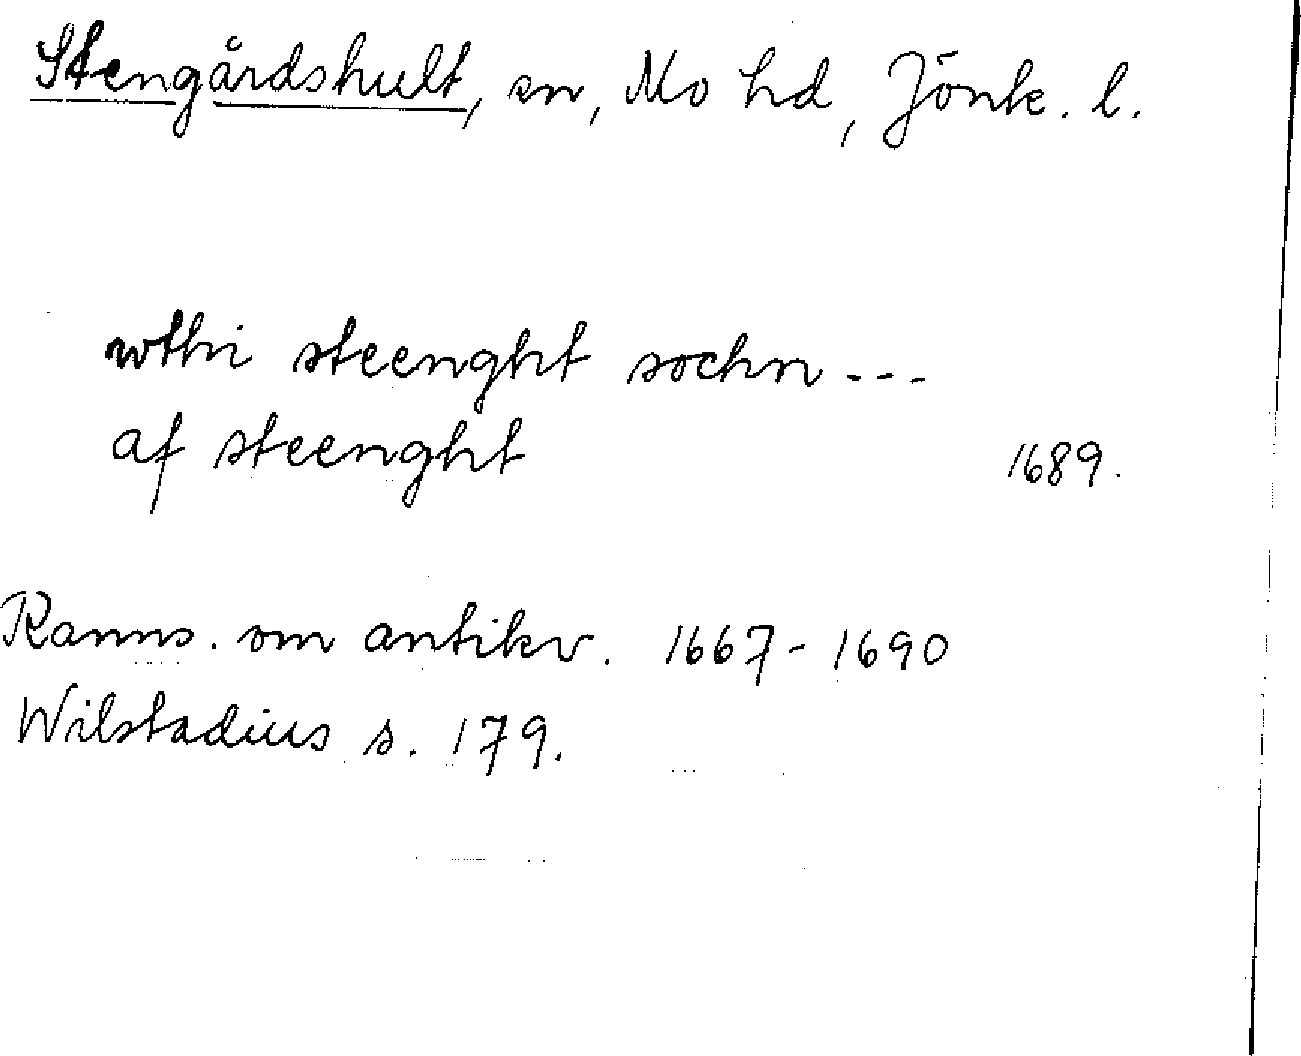 Stengårdshult, sn, Mo hd, Jönk. l.
wthi steenght sochn ---
af steenght 1689.
Ranns. om antikv. 1667-1690
Wilstadius s. 179.